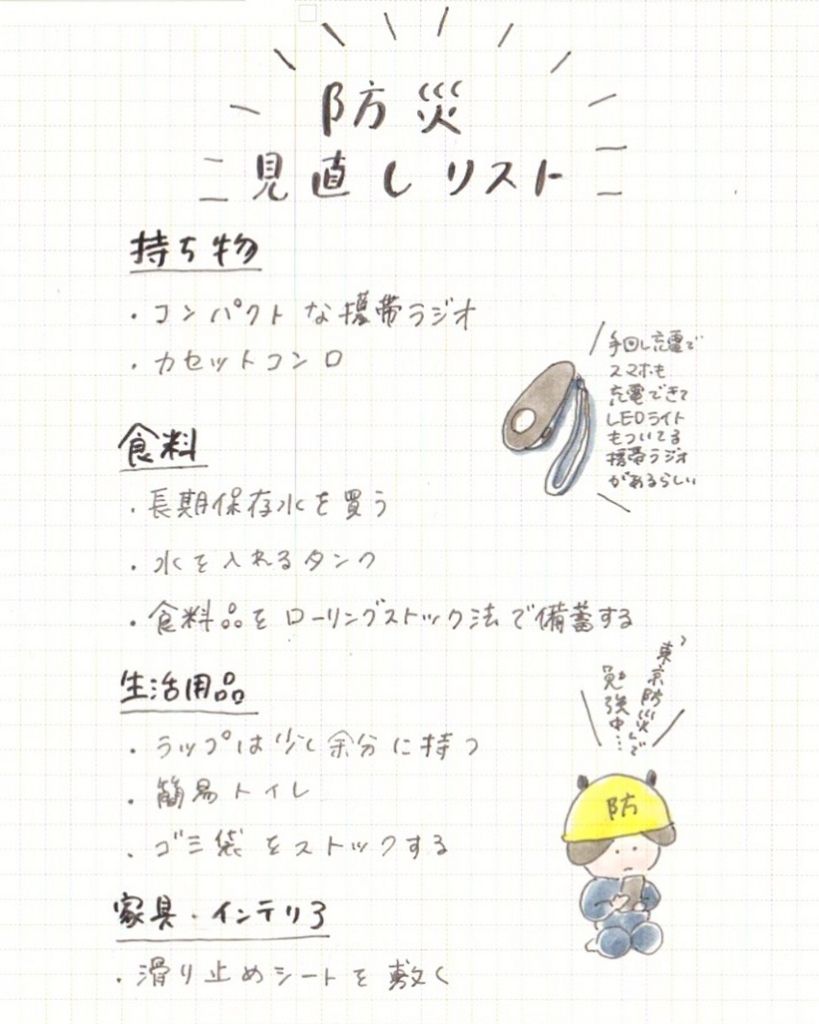 防災
見直しリスト
持ち物
・コンパクトな携帯ラジオ
・カセットコンロ
手回し充電で
スマホも
充電できて
LEDライト
もついてる
携帯ラジオ
があるらしい
食料
・長期保存水を買う
・水を入れるタンク
・食料品をローリングストック法で備蓄する
生活用品
・ラップは少し余分に持つ
・簡易トイレ
・ゴミ袋をストックする
「東京防災」で
勉強中…
防
家具・インテリア
・滑り止めシートを敷く